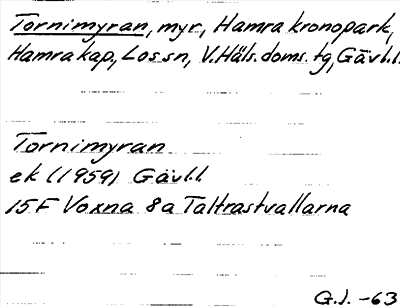 Tornimyran, myr, Hamra kronopark,
Hamra kap, Los sn, V. Häls. doms. tg, Gävl.l.
Tornimyran
ek (1959) Gävl.l
15F Voxna 8a Taltrastvallarna
G.J. -63